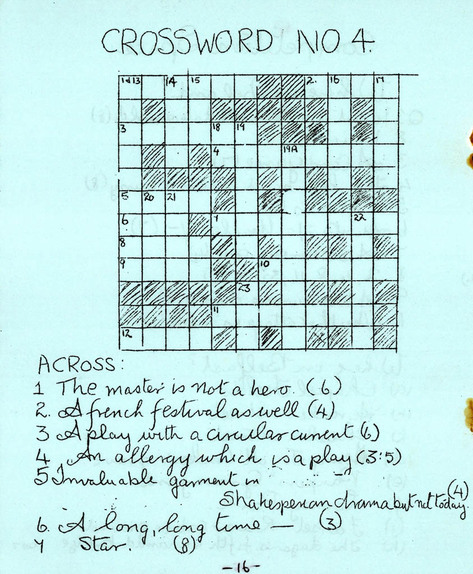 CROSSWORD NO 4.
1&13 14 15 2. 16 17
3 18 19
4 19A
5 20 21
6 7 22
8
9 10
23
11
12
ACROSS:
1 The master is not a hero. (6)
2. A french festival as well (4)
3 A play with a circular current (6)
4 An allergy which is a play (3:5)
5 Invaluable garment in
Shakesperian drama but not today. (4)
6. A long, long time — (3)
7 Star. (8)
-16-